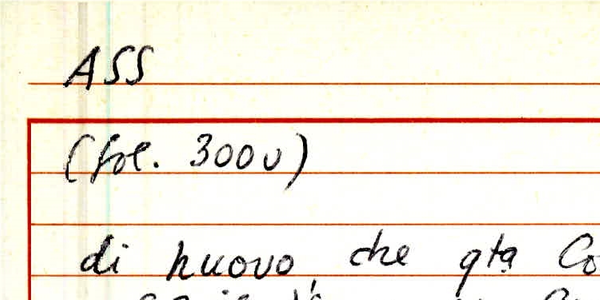 ASS
(fol. 300v)
di nuovo, che qta Co